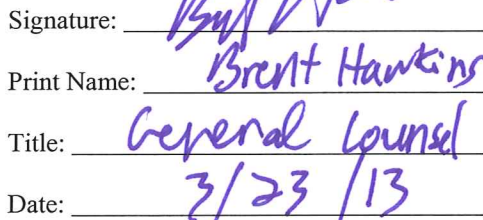 Signature:
Print Name: Brent Hawkins
Title: General Counsel
Date: 3/23/13